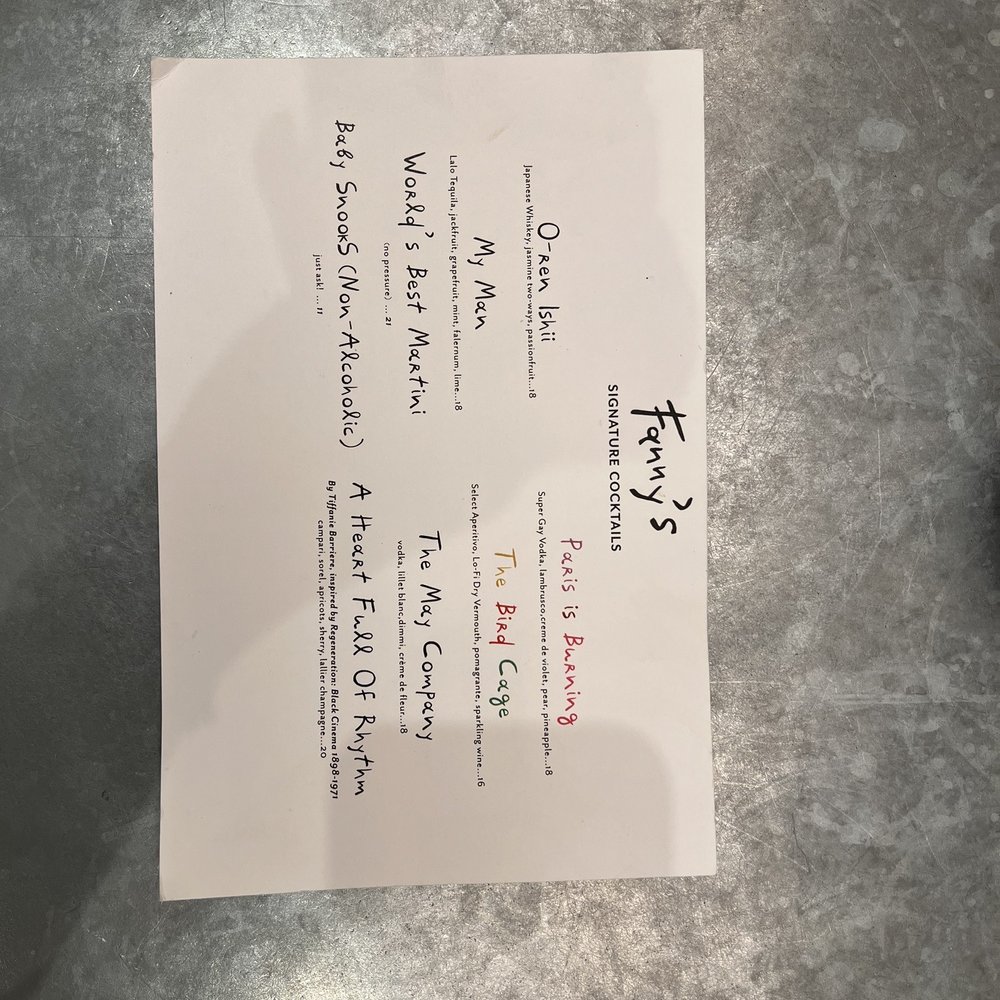 Fanny's
SIGNATURE COCKTAILS
O-Ren Ishii
Japanese Whiskey, jasmine two-ways, passionfruit...18
My Man
Lalo Tequila, jackfruit, grapefruit, mint, falernum, lime...18
World's Best Martini
(no pressure) ... 21
Baby Snooks (Non-Alcoholic)
just ask! ... 11
Paris is Burning
Super Gay Vodka, lambrusco,creme de violet, pear, pineapple...18
The Bird Cage
Select Aperitivo, Lo-Fi Dry Vermouth, pomagrante, sparkling wine...16
The May Company
vodka, lillet blanc,dimmi, crème de fleur...18
A Heart Full Of Rhythm
By Tiffanie Barriere, inspired by Regeneration: Black Cinema 1898-1971
campari, sorel, apricots, sherry, lallier champagne...20